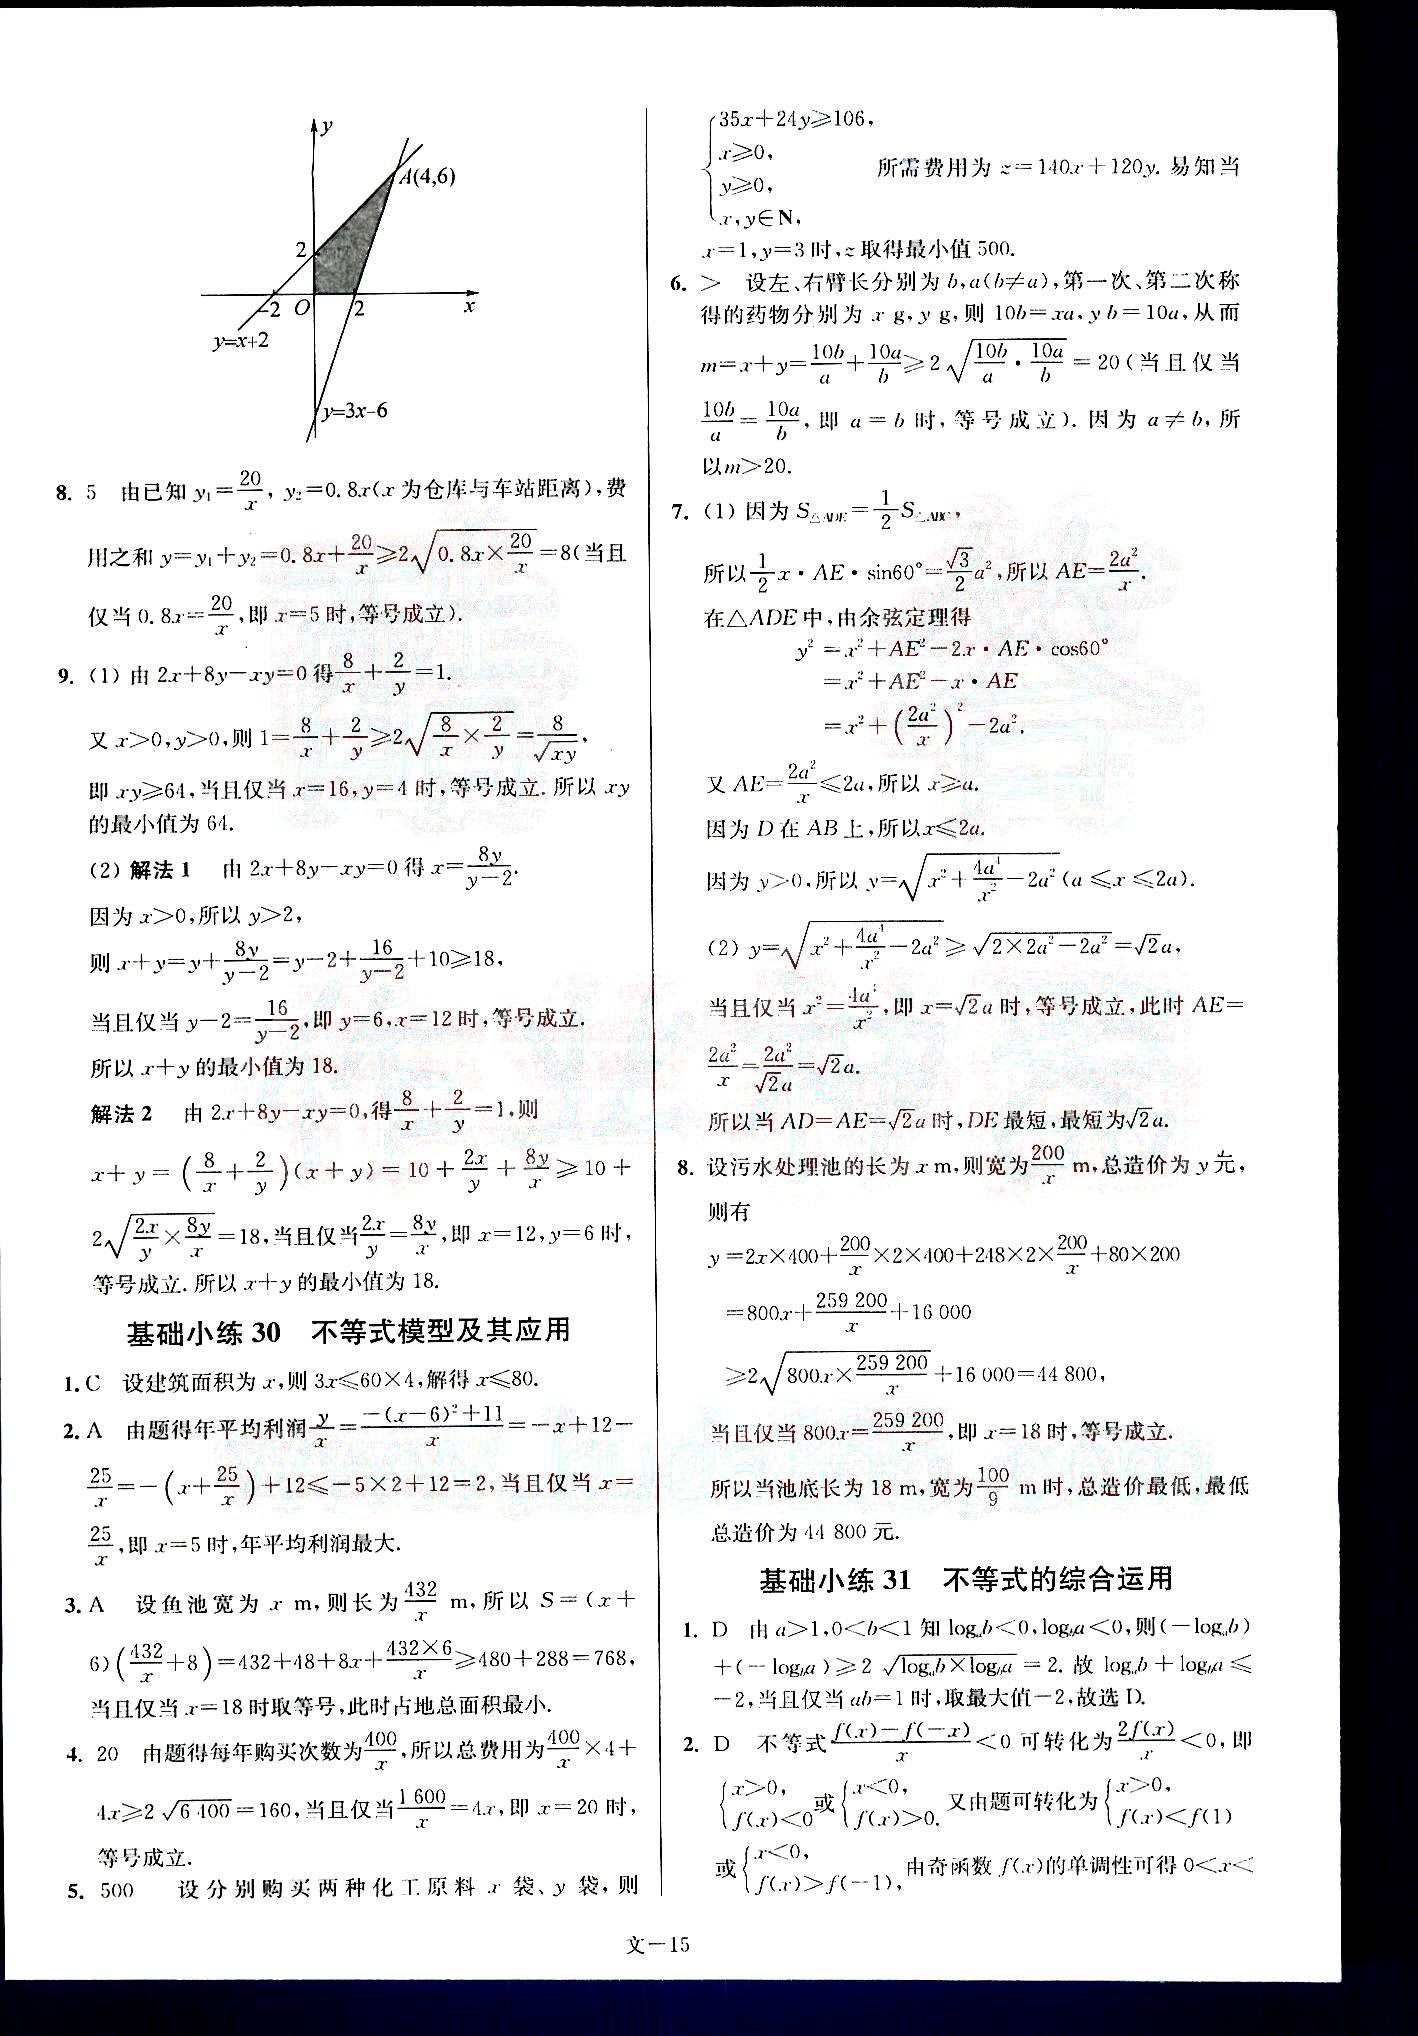 y
A(4,6)
2
-2 O 2 x
y=x+2
y=3x-6
8. 5 由已知 y₁=20/x, y₂=0.8x(x 为仓库与车站距离),费
用之和 y=y₁+y₂=0.8x+20/x≥2√(0.8x×20/x)=8(当且
仅当 0.8x=20/x,即 x=5 时,等号成立).
9. (1) 由 2x+8y-xy=0 得 8/x+2/y=1.
又 x>0,y>0,则 1=8/x+2/y≥2√(8/x×2/y)=8/√(xy),
即 xy≥64,当且仅当 x=16,y=4 时,等号成立.所以 xy
的最小值为 64.
(2) 解法 1 由 2x+8y-xy=0 得 x=8y/(y-2).
因为 x>0,所以 y>2,
则 x+y=y+8y/(y-2)=y-2+16/(y-2)+10≥18,
当且仅当 y-2=16/(y-2),即 y=6,x=12 时,等号成立.
所以 x+y 的最小值为 18.
解法 2 由 2x+8y-xy=0,得 8/x+2/y=1,则
x+y=(8/x+2/y)(x+y)=10+2x/y+8y/x≥10+
2√(2x/y×8y/x)=18,当且仅当 2x/y=8y/x,即 x=12,y=6 时,
等号成立.所以 x+y 的最小值为 18.
基础小练 30 不等式模型及其应用
1. C 设建筑面积为 x,则 3x≤60×4,解得 x≤80.
2. A 由题得年平均利润 y/x=(-(x-6)²+11)/x=-x+12-
25/x=-(x+25/x)+12≤-5×2+12=2,当且仅当 x=
25/x,即 x=5 时,年平均利润最大.
3. A 设鱼池宽为 x m,则长为 432/x m,所以 S=(x+
6)(432/x+8)=432+48+8x+(432×6)/x≥480+288=768,
当且仅当 x=18 时取等号,此时占地总面积最小.
4. 20 由题得每年购买次数为 400/x,所以总费用为 400/x×4+
4x≥2√(6 400)=160,当且仅当 1 600/x=4x,即 x=20 时,
等号成立.
5. 500 设分别购买两种化工原料 x 袋、y 袋,则
{35x+24y≥106,
x≥0,
y≥0,
x,y∈N, 所需费用为 z=140x+120y. 易知当
x=1,y=3 时,z 取得最小值 500.
6. > 设左、右臂长分别为 b,a(b≠a),第一次、第二次称
得的药物分别为 x g,y g,则 10b=xa,yb=10a,从而
m=x+y=10b/a+10a/b≥2√(10b/a·10a/b)=20(当且仅当
10b/a=10a/b,即 a=b 时,等号成立).因为 a≠b,所
以 m>20.
7. (1) 因为 S△ADE=1/2 S△ABC,
所以 1/2 x·AE·sin60°=√3/2 a²,所以 AE=2a²/x.
在△ADE 中,由余弦定理得
y²=x²+AE²-2x·AE·cos60°
=x²+AE²-x·AE
=x²+(2a²/x)²-2a².
又 AE=2a²/x≤2a,所以 x≥a.
因为 D 在 AB 上,所以 x≤2a.
因为 y>0,所以 y=√(x²+4a⁴/x²-2a²)(a≤x≤2a).
(2) y=√(x²+4a⁴/x²-2a²)≥√(2×2a²-2a²)=√2a,
当且仅当 x²=4a⁴/x²,即 x=√2a 时,等号成立,此时 AE=
2a²/x=2a²/(√2a)=√2a.
所以当 AD=AE=√2a 时,DE 最短,最短为√2a.
8. 设污水处理池的长为 x m,则宽为 200/x m,总造价为 y 元,
则有
y=2x×400+200/x×2×400+248×2×200/x+80×200
=800x+259 200/x+16 000
≥2√(800x×259 200/x)+16 000=44 800,
当且仅当 800x=259 200/x,即 x=18 时,等号成立.
所以当池底长为 18 m,宽为 100/9 m 时,总造价最低,最低
总造价为 44 800 元.
基础小练 31 不等式的综合运用
1. D 由 a>1,0<b<1 知 logₐb<0,log_b a<0,则(-logₐb)
+(-log_b a)≥2√(logₐb×log_b a)=2. 故 logₐb+log_b a≤
-2,当且仅当 ab=1 时,取最大值-2,故选 D.
2. D 不等式 (f(x)-f(-x))/x<0 可转化为 2f(x)/x<0,即
{x>0, f(x)<0 或 {x<0, f(x)>0. 又由题可转化为 {x>0, f(x)<f(1)
或 {x<0, f(x)>f(-1), 由奇函数 f(x)的单调性可得 0<x<
文—15